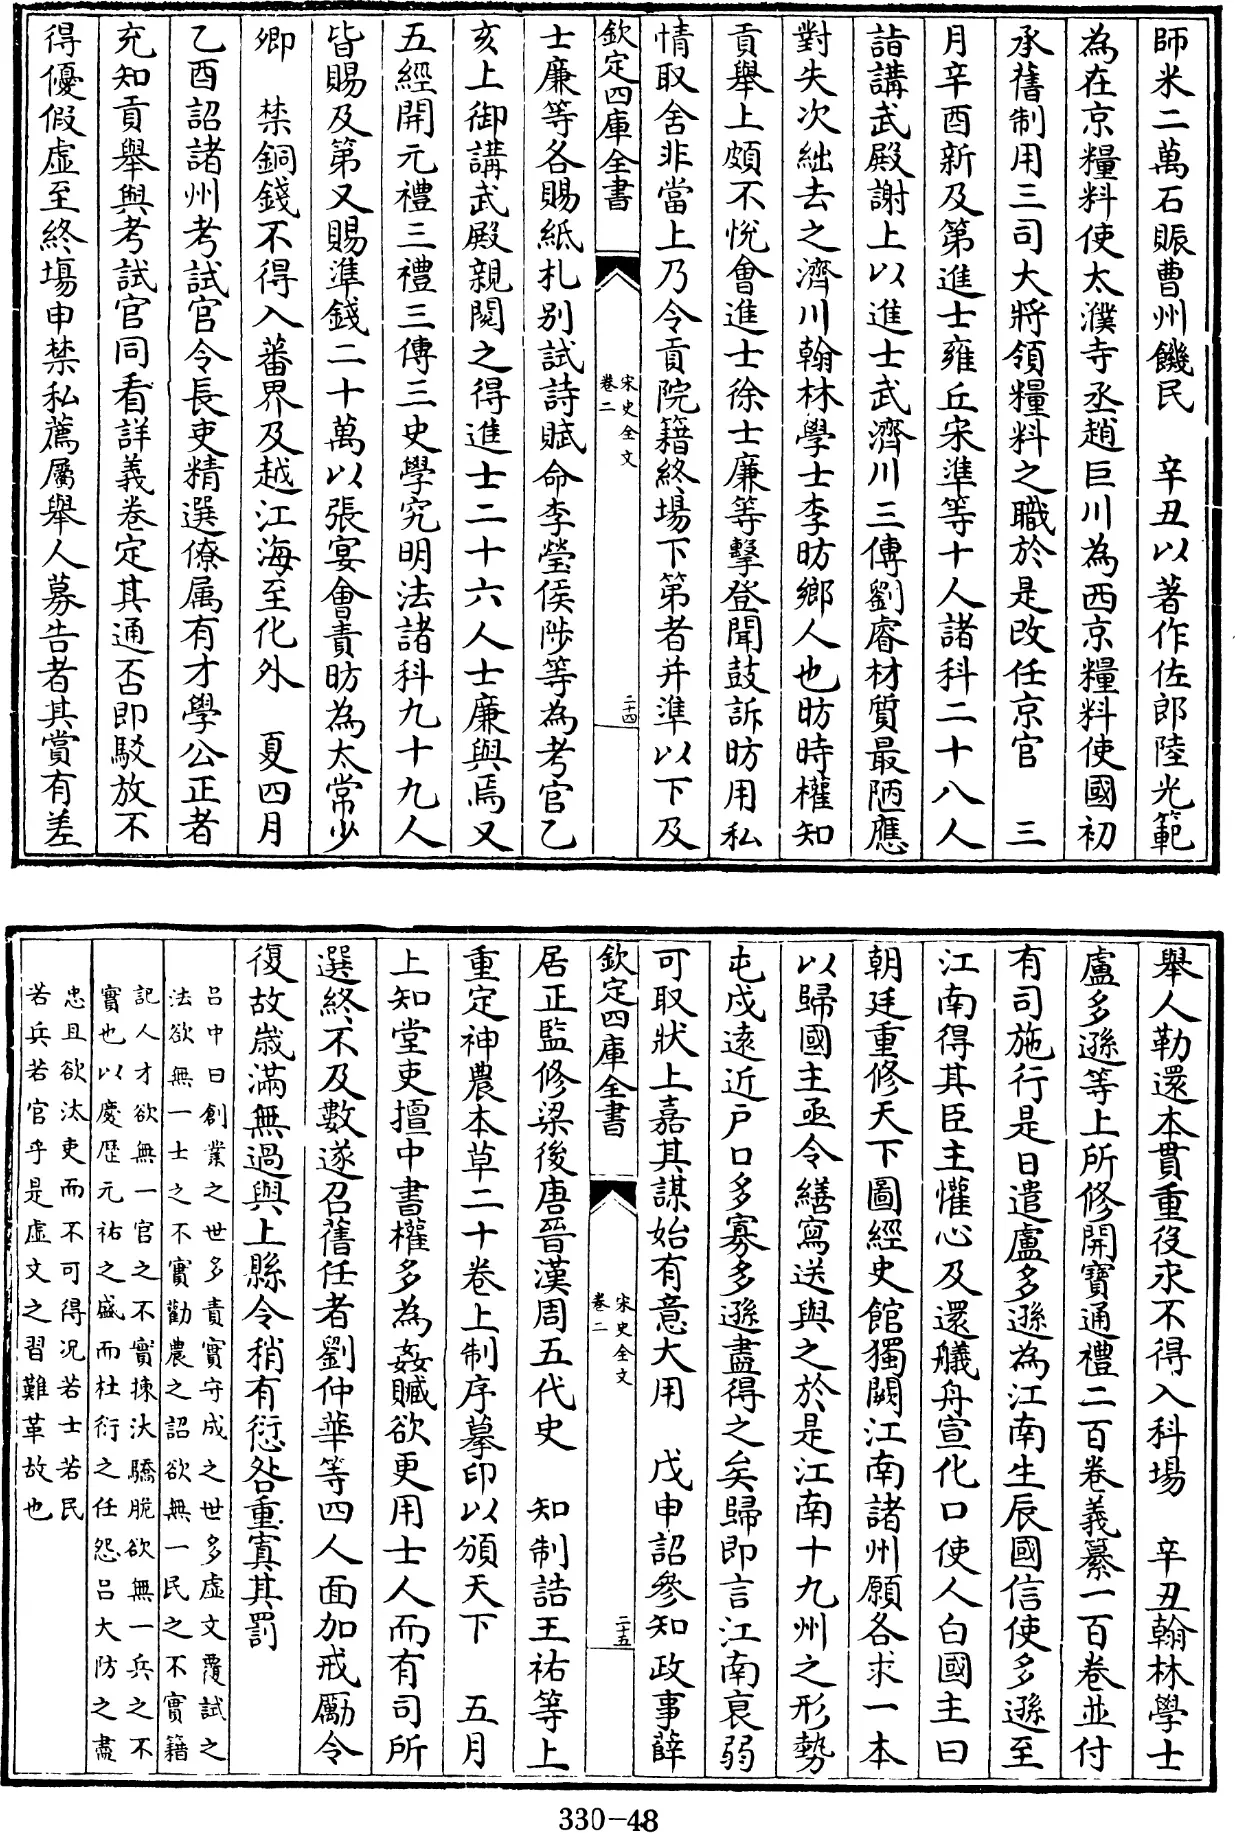 師米二萬石賑曹州饑民　辛丑以著作佐郎陸光範
為在京糧料使太濮寺丞趙巨川為西京糧料使國初
承舊制用三司大將領糧料之職於是改任京官　三
月辛酉新及第進士雍丘宋準等十人諸科二十八人
詣講武殿謝上以進士武濟川三傳劉睿材質最陋應
對失次絀去之濟川翰林學士李昉鄉人也昉時權知
貢舉上頗不悅會進士徐士廉等擊登聞鼓訴昉用私
情取舍非當上乃令貢院籍終場下第者并準以下及
欽定四庫全書
宋史全文
卷二
二十四
士廉等各賜紙札別試詩賦命李瑩侯陟等為考官乙
亥上御講武殿親閱之得進士二十六人士廉與焉又
五經開元禮三禮三傳三史學究明法諸科九十九人
皆賜及第又賜準錢二十萬以張宴會責昉為太常少
卿　禁銅錢不得入蕃界及越江海至化外　夏四月
乙酉詔諸州考試官令長吏精選僚属有才學公正者
充知貢舉與考試官同看詳義卷定其通否即駁放不
得優假虛至終塲申禁私薦屬舉人募告者其賞有差
舉人勒還本貫重役永不得入科場　辛丑翰林學士
盧多遜等上所修開寶通禮二百卷義纂一百卷並付
有司施行是日遣盧多遜為江南生辰國信使多遜至
江南得其臣主懽心及還艤舟宣化口使人白國主曰
朝廷重修天下圖經史館獨闕江南諸州願各求一本
以歸國主亟令繕寫送與之於是江南十九州之形勢
屯戍遠近户口多寡多遜盡得之矣歸即言江南衰弱
可取狀上嘉其謀始有意大用　戊申詔參知政事薛
欽定四庫全書
宋史全文
卷二
二十五
居正監修梁後唐晉漢周五代史　知制誥王祐等上
重定神農本草二十卷上制序摹印以頒天下　五月
上知堂吏擅中書權多為姦贓欲更用士人而有司所
選終不及數遂召舊任者劉仲華等四人面加戒勵令
復故歲滿無過與上縣令稍有愆咎重寘其罰
呂中曰創業之世多責實守成之世多虛文覆試之
法欲無一士之不實勸農之詔欲無一民之不實籍
記人才欲無一官之不實揀汰驕脆欲無一兵之不
實也以慶歴元祐之盛而杜衍之任怨呂大防之盡
忠且欲汰吏而不可得况若士若民
若兵若官乎是虛文之習難革故也
330-48